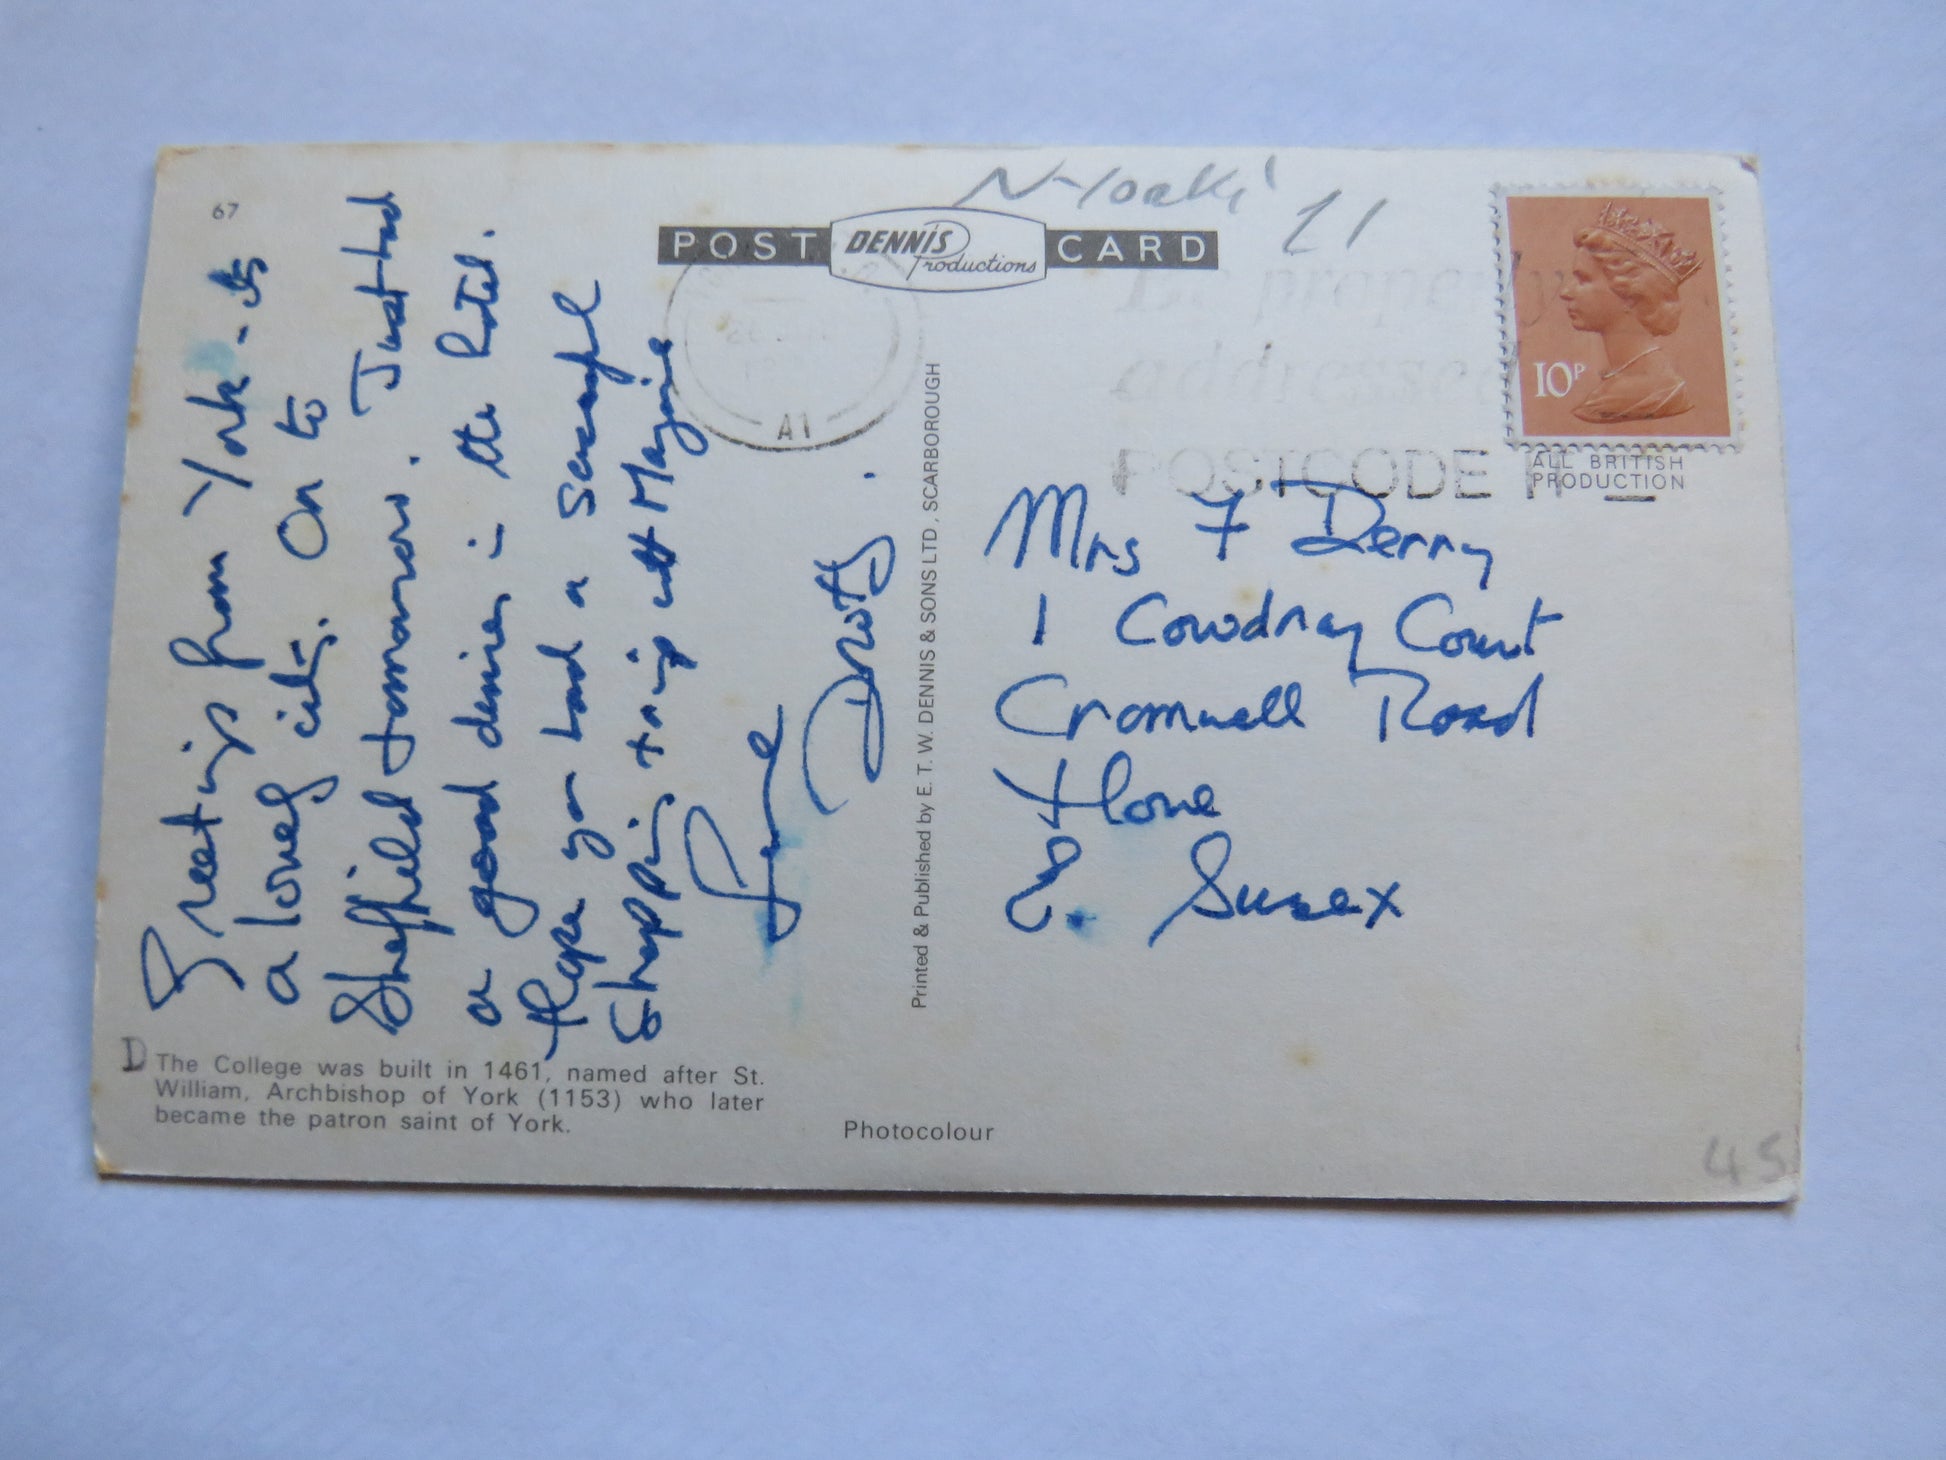 67
POST DENNIS Productions CARD
N-Yorks
Be properly
addressed
POSTCODE IT
10P
ALL BRITISH
PRODUCTION
A1
Greetings from York - its
a lovely city. On to
Sheffield tomorrow. Just had
a good dinner in the hotel.
Hope you had a successful
Shopping trip with Marjorie
Love
Dotty.
Printed & Published by E. T. W. DENNIS & SONS LTD, SCARBOROUGH
Mrs F Denny
1 Cowdray Court
Cromwell Road
Hove
E. Sussex
D The College was built in 1461, named after St.
William, Archbishop of York (1153) who later
became the patron saint of York.
Photocolour
45